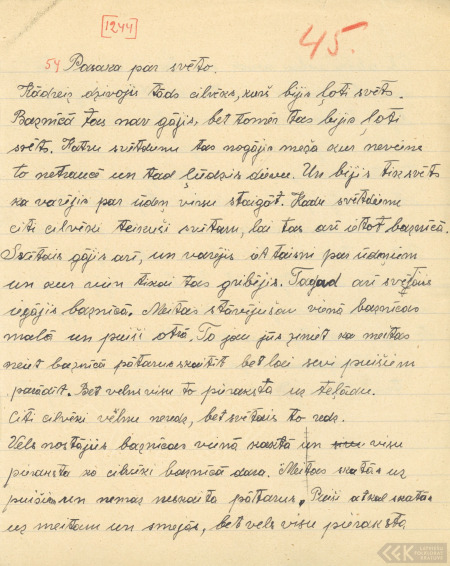 1244
45.
54 Pasaka par svēto.
Kādreiz dzīvojis tāds cilvēks, kurš bijis ļoti svēts.
Baznīcā tas nav gājis, bet tomēr tas bijis ļoti
svēts. Katru svētdienu tas nogājis mežā kur neviens
to netraucē un tad lūdzis dievu. Un bijis tik svēts
ka varējis par ūdeņ virsu staigāt. Kādu svētdienu
citi cilvēki teikuši svētam, lai tas arī ietot baznīcā.
Svētais gājis arī, un varējis iet taisni par ūdeņiem
un kur vien tikai tas gribējis. Tagad arī svētais
iegājis baznīcā. Meitas stāvējušas vienā baznīcas
malā un puiši otrā. To jau jūs ziniet ka meitas
neiet baznīcā pātarus skaitīt bet lai sevi puišiem
parādīt. Bet velns visu to pieraksta uz teļādu.
Citi cilvēki vēlnu neredz, bet svētais to redz.
Vels nostājies baznīcas vienā kaktā un visu
pieraksta ko cilvēki baznīcā dara. Meitas skatās uz
puišiem un nemaz neskaita pātarus. Puiši atkal skatās
uz meitām un smejās, bet vels visu pieraksta